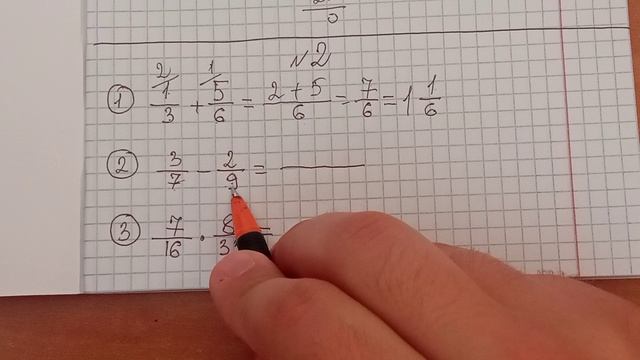 №2
① 1/3 + 5/6 = 2+5/6 = 7/6 = 1 1/6
② 3/7 - 2/9 =
③ 7/16 · 8/3